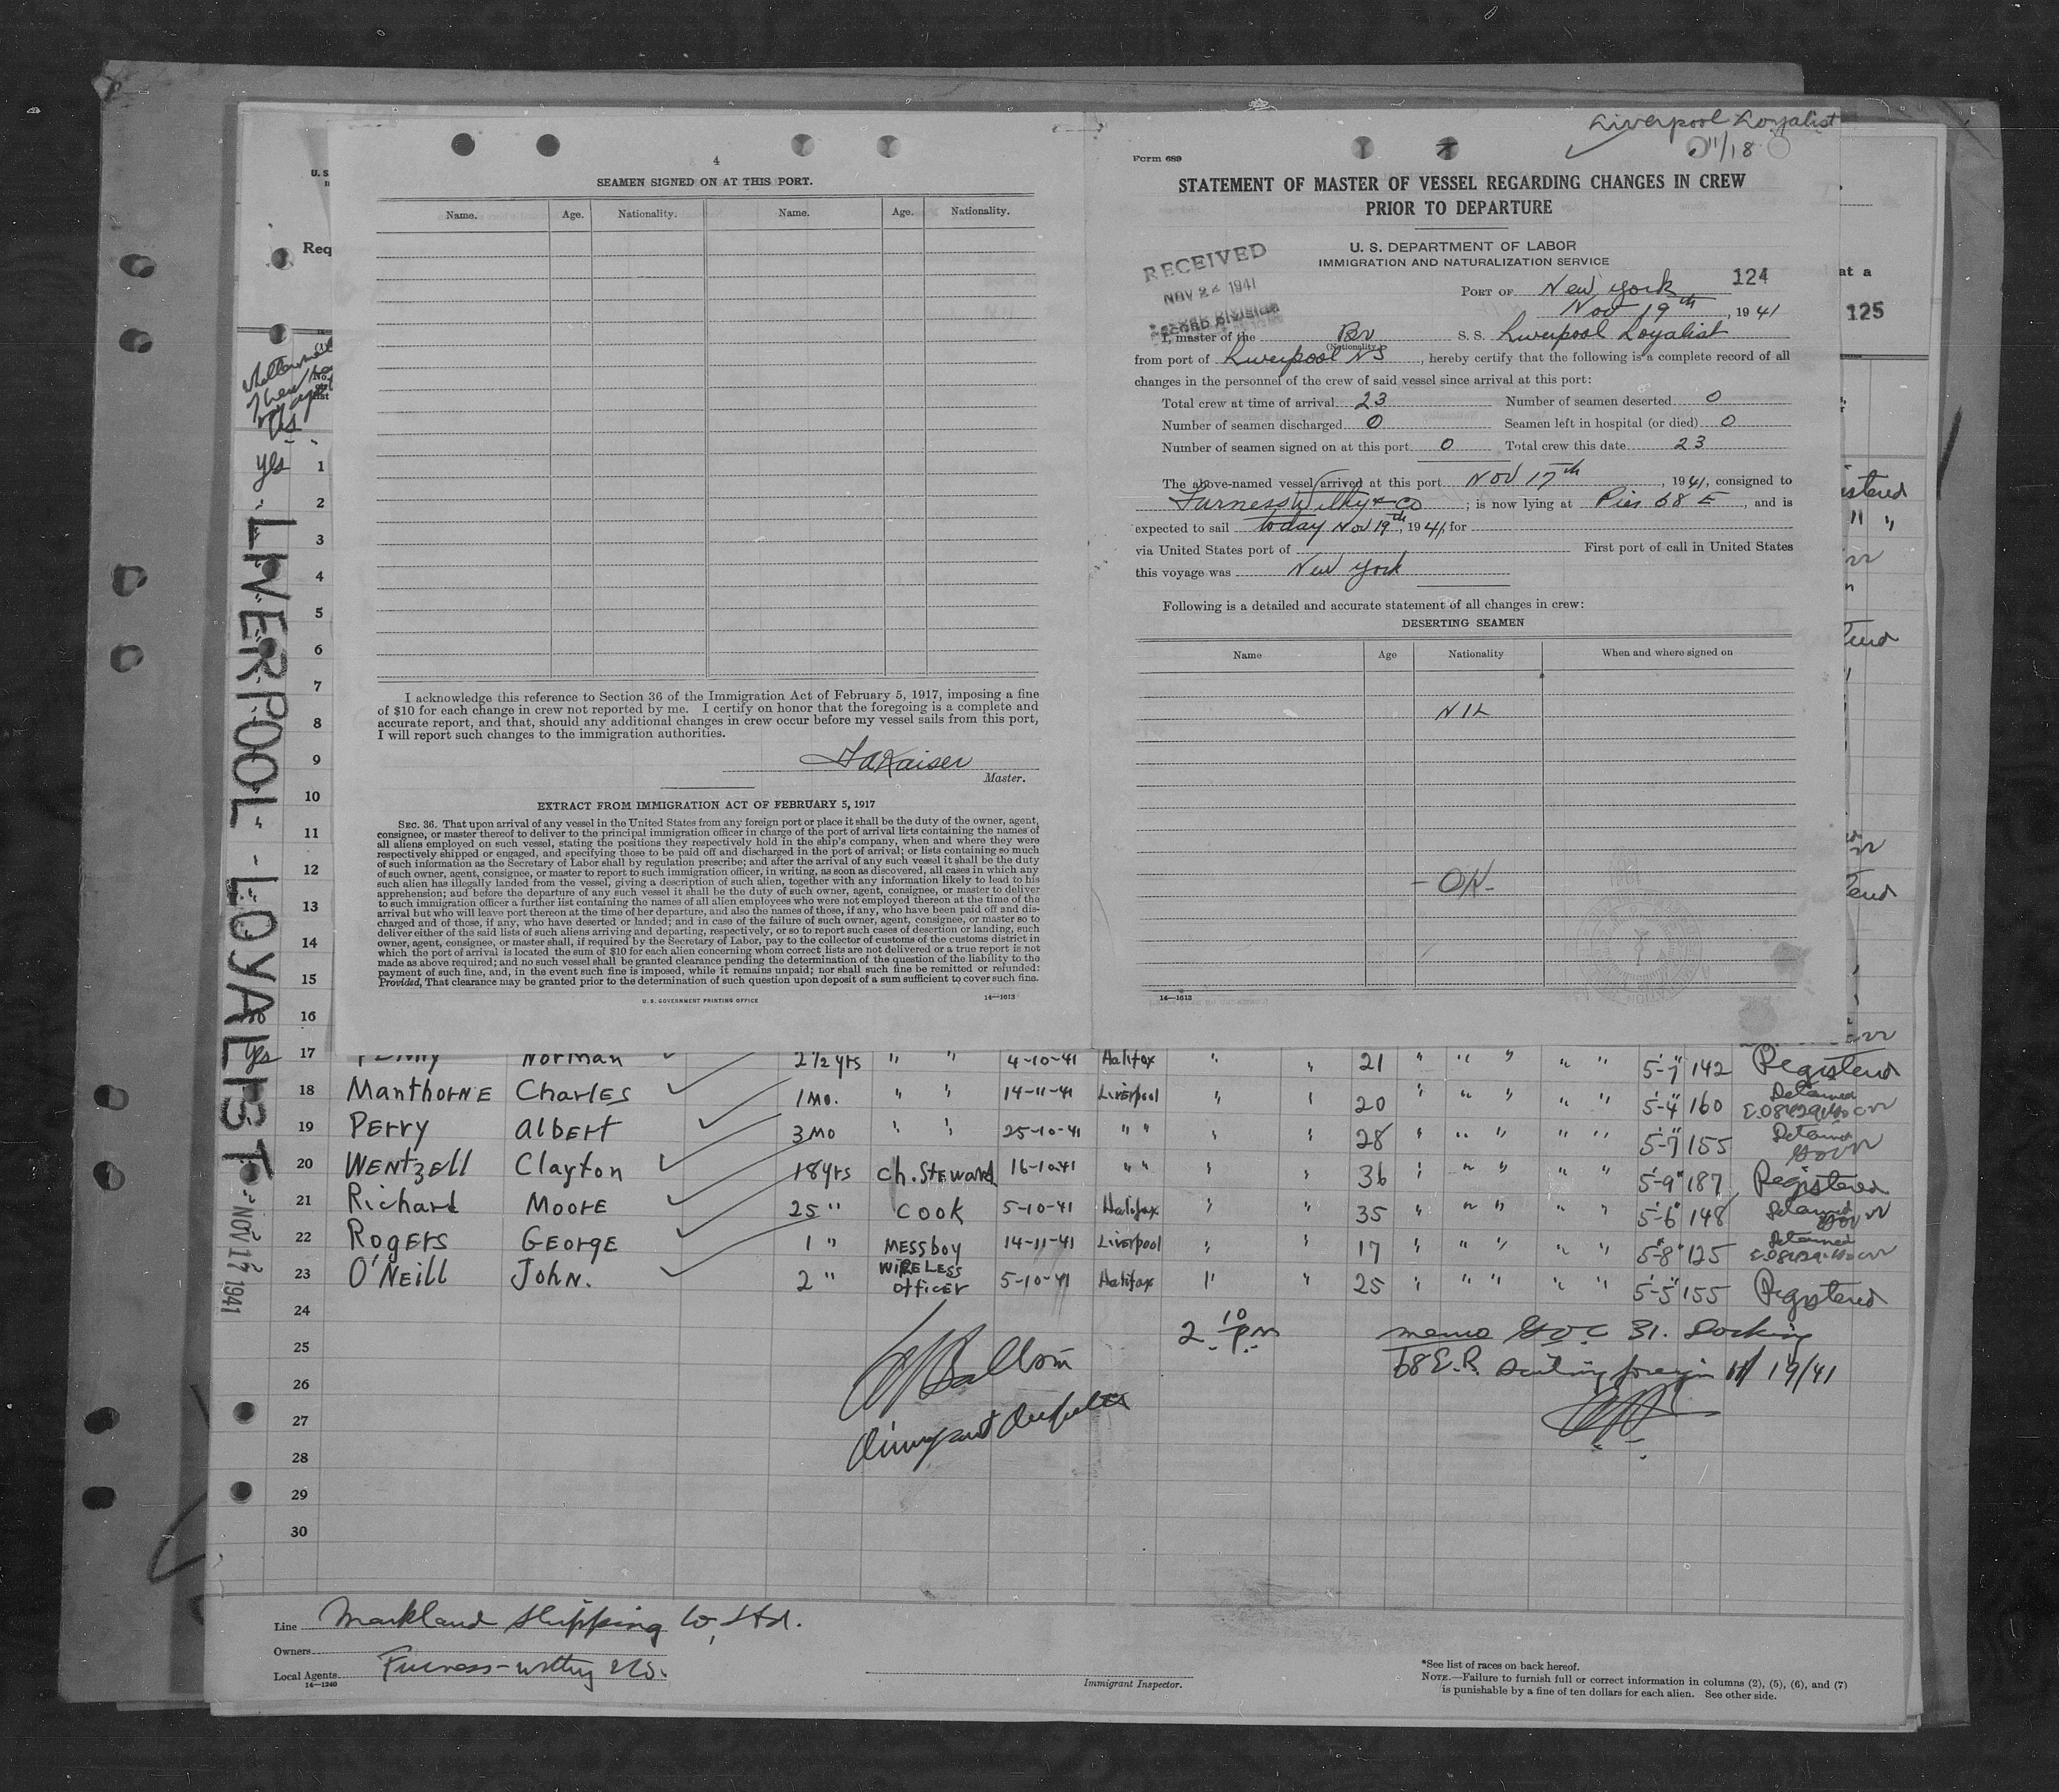 4
SEAMEN SIGNED ON AT THIS PORT.
Name. Age. Nationality. Name. Age. Nationality.
I acknowledge this reference to Section 36 of the Immigration Act of February 5, 1917, imposing a fine
of $10 for each change in crew not reported by me. I certify on honor that the foregoing is a complete and
accurate report, and that, should any additional changes in crew occur before my vessel sails from this port,
I will report such changes to the immigration authorities.
Kaiser
Master.
EXTRACT FROM IMMIGRATION ACT OF FEBRUARY 5, 1917
SEC. 36. That upon arrival of any vessel in the United States from any foreign port or place it shall be the duty of the owner, agent,
consignee, or master thereof to deliver to the principal immigration officer in charge of the port of arrival lists containing the names of
all aliens employed on such vessel, stating the positions they respectively hold in the ship's company, when and where they were
respectively shipped or engaged, and specifying those to be paid off and discharged in the port of arrival; or lists containing so much
of such information as the Secretary of Labor shall by regulation prescribe; and after the arrival of any such vessel it shall be the duty
of such owner, agent, consignee, or master to report to such immigration officer, in writing, as soon as discovered, all cases in which any
such alien has illegally landed from the vessel, giving a description of such alien, together with any information likely to lead to his
apprehension; and before the departure of any such vessel it shall be the duty of such owner, agent, consignee, or master to deliver
to such immigration officer a further list containing the names of all alien employees who were not employed thereon at the time of the
arrival but who will leave port thereon at the time of her departure, and also the names of those, if any, who have been paid off and dis-
charged and of those, if any, who have deserted or landed; and in case of the failure of such owner, agent, consignee, or master so to
deliver either of the said lists of such aliens arriving and departing, respectively, or so to report such cases of desertion or landing, such
owner, agent, consignee, or master shall, if required by the Secretary of Labor, pay to the collector of customs of the customs district in
which the port of arrival is located the sum of $10 for each alien concerning whom correct lists are not delivered or a true report is not
made as above required; and no such vessel shall be granted clearance pending the determination of the question of the liability to the
payment of such fine, and, in the event such fine is imposed, while it remains unpaid; nor shall such fine be remitted or refunded:
Provided, That clearance may be granted prior to the determination of such question upon deposit of a sum sufficient to cover such fine.
U. S. GOVERNMENT PRINTING OFFICE 14—1613
Liverpool Loyalist
11/18
Form 689
STATEMENT OF MASTER OF VESSEL REGARDING CHANGES IN CREW
PRIOR TO DEPARTURE
U. S. DEPARTMENT OF LABOR
IMMIGRATION AND NATURALIZATION SERVICE
RECEIVED
NOV 24 1941
RECORD DIVISION
124
PORT OF New York
Nov 19th, 1941
I, master of the Br S. S. Liverpool Loyalist
(Nationality)
from port of Liverpool NS, hereby certify that the following is a complete record of all
changes in the personnel of the crew of said vessel since arrival at this port:
Total crew at time of arrival 23 Number of seamen deserted 0
Number of seamen discharged 0 Seamen left in hospital (or died) 0
Number of seamen signed on at this port 0 Total crew this date 23
The above-named vessel arrived at this port Nov 17th, 1941, consigned to
Furness Withy & Co; is now lying at Pier 68 E, and is
expected to sail today Nov 19th, 1941, for
via United States port of First port of call in United States
this voyage was New York
Following is a detailed and accurate statement of all changes in crew:
DESERTING SEAMEN
Name Age Nationality When and where signed on
NIL
14—1613
U. S
Req
at a
125
LIVERPOOL - LOYALIST
NOV 17 1941
yes
1
2
3
4
5
6
7
8
9
10
11
12
13
14
15
16
yes 17 Norman 2 1/2 yrs " " 4-10-41 Halifax " " 21 " " " " " 5-7" 142 Registered
18 Manthorne Charles 1 Mo. " " 14-11-41 Liverpool " " 20 " " " " " 5-4" 160 Detained
19 Perry Albert 3 Mo " " 25-10-41 " " " " 28 " " " " " 5-7" 155 Detained
20 Wentzell Clayton 18 yrs Ch. Steward 16-10-41 " " " " 36 " " " " " 5-9" 187 Registered
21 Richard Moore 25 " Cook 5-10-41 Halifax " " 35 " " " " " 5-6" 148 Detained
22 Rogers George 1 " Messboy 14-11-41 Liverpool " " 17 " " " " " 5-8" 125 Detained
23 O'Neill John. 2 " Wireless Officer 5-10-41 Halifax " " 25 " " " " " 5-5" 155 Registered
24
25
26
27
28
29
30
2 10 pm
memo 31. Docking
68 E.R. Sailing foreign 11/19/41
Line Markland Shipping Co, Ltd.
Owners
Local Agents Furness-Withy & Co.
14—1240
Immigrant Inspector.
*See list of races on back hereof.
NOTE.—Failure to furnish full or correct information in columns (2), (5), (6), and (7)
is punishable by a fine of ten dollars for each alien. See other side.